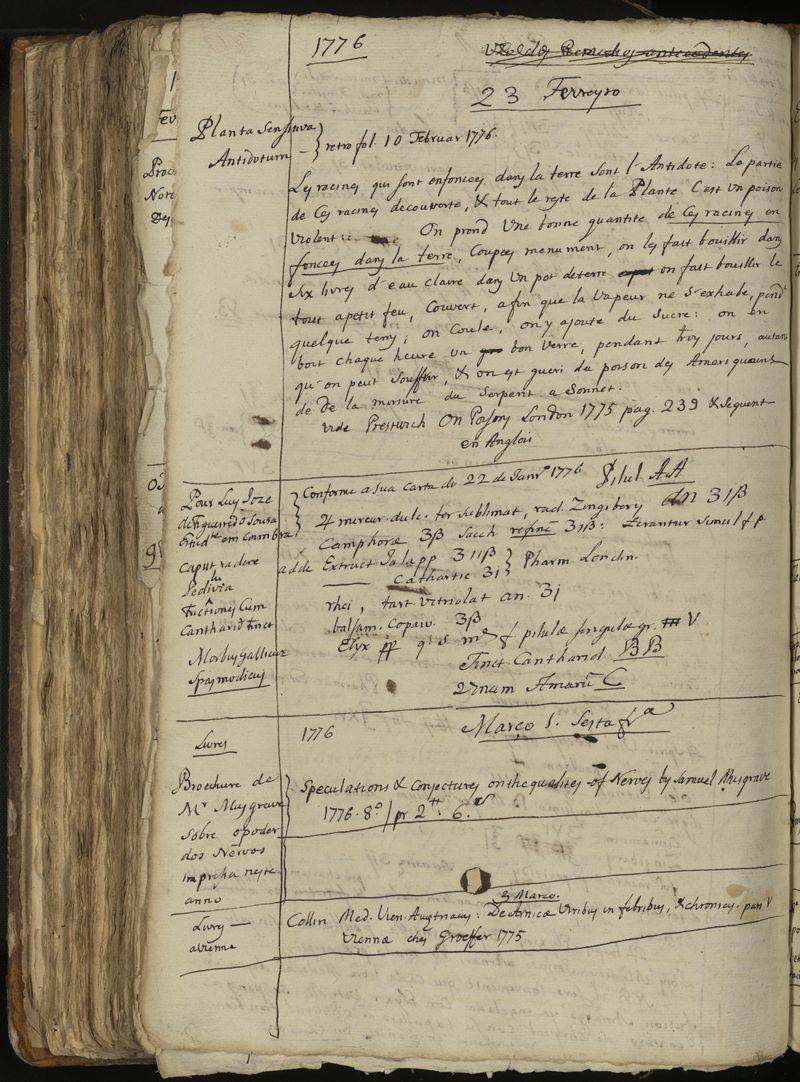 1776
23 Ferreyro
Planta Sensitiva
Antidotum — } retro fol. 10 Februar 1776.
Les racines qui sont enfoncees dans la terre sont l'Antidote: La partie
de Ces racines decouverte, & tout le reste de la Plante C'est un poison
Violent: On prend Une bonne quantite de Ces racines en
foncees dans la terre, Coupees menument, on les fait bouillir dans
six livres d'eau claire dans un pot de terre on fait bouillir le
tout apetit feu, Couvert, afin que la Vapeur ne S'exhale, pendt
quelque tems; on Coule, on y ajoute du Sucre: on en
boit chaque heure un bon verre, pendant trois jours, autant
qu'on peut Souffrir, & on est gueri du poison des Ameriquains
de De la morsure du Serpent a Sonnet.
vide Prestwich On Poysons London 1775 pag. 239 & sequent
en Anglois
Pour Luis Joze
de Figueiredo Sousa
Estudte em Coimbra
Caput radere
Pediluvia
Frictiones Cum
Cantharid Tinct
Morbus gallicus
Spasmodicus
Conforme a sua Carta de 22 de Janro 1776 Pilul AA
♃ mercur. dulc. ter Sublimat, rad. Zingibery an ʒ1ß
Camphoræ ʒß Sacch refine ʒ1ß: terantur simul f p
adde Extract Jalapp ʒ11ß } Pharm Londin.
—— Cathartic ʒ1
rhei, tart. Vitriolat an. ʒj
balsam. Copaiv. ʒß
Elyx pp q: s me f pilulæ singulæ gr. V
Tinct Cantharid. BB
Vinum Amarũ C
Livres
1776 Março 1. Sesta fra
Brochure de
Mr Musgrave
Sobre o poder
dos Nervos
impressa neste
anno
Speculations & Conjectures on the qualities of Nerves by Samuel Musgrave
1776. 8º / pr 2tt: 6.s
3 Marco.
Livres —
a vienne
Collin Med. Vien. Augtriacus: De Arnicæ Viribus in febribus, & chronicis. pars V
Viennæ chés Groeffer 1775